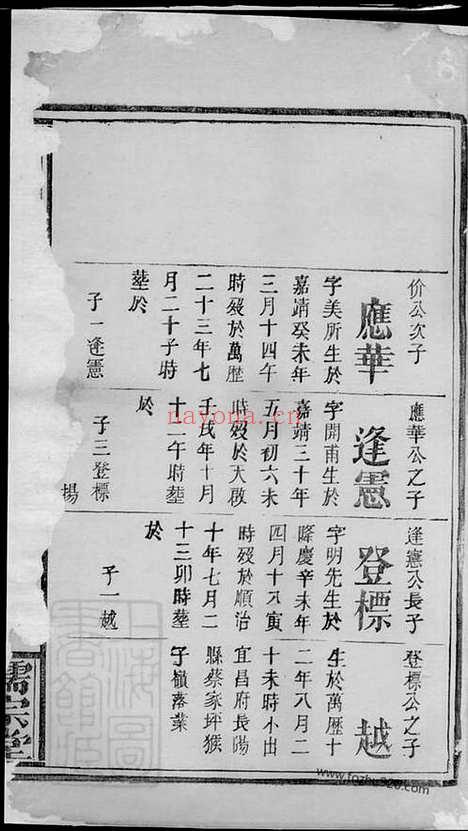 价公次子
應華
字美所生於
嘉靖癸未年
三月十四午
時殁於萬歴
二十三年七
月二十子時
塟於
子一逢憲
應華公之子
逢憲
字開甫生於
嘉靖三十年
五月初六未
時殁於天啟
壬戌年十月
十二午時塟
於
子三登標
楊
逢憲公長子
登標
字明先生於
隆慶辛未年
四月十八寅
時殁於順治
十年七月二
十三卯時塟
於
子一越
登標公之子
越
生於萬歴十
二年八月二
十未時小出
宜昌府長陽
縣蔡家坪猴
子嶺落業
nayona.cn
www.fozhu920.com